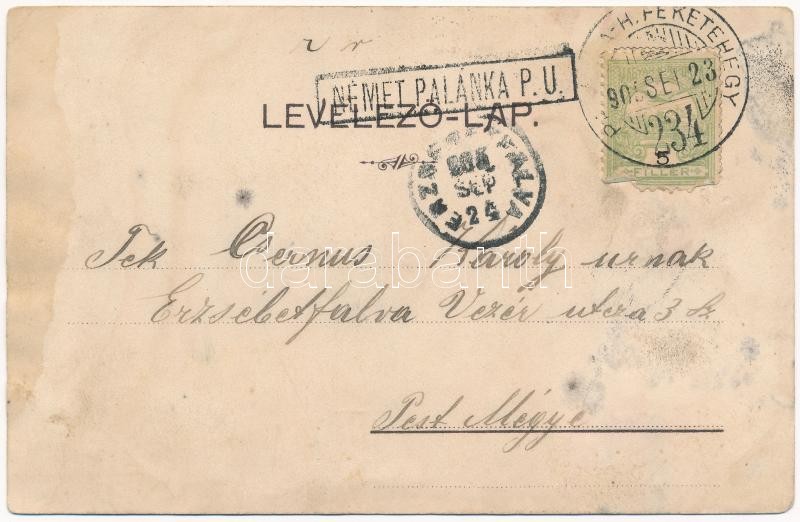 NÉMET PALÁNKA P. U.
LEVELEZŐ-LAP.
H. FEKETEHEGY
905 SEP 23
234
5
FILLÉR
ERZSÉBETFALVA
905
SEP
24
Tek Csernus Károly urnak
Erzsébetfalva Vezér utcza 3 sz
Pest Mégye
darabanth